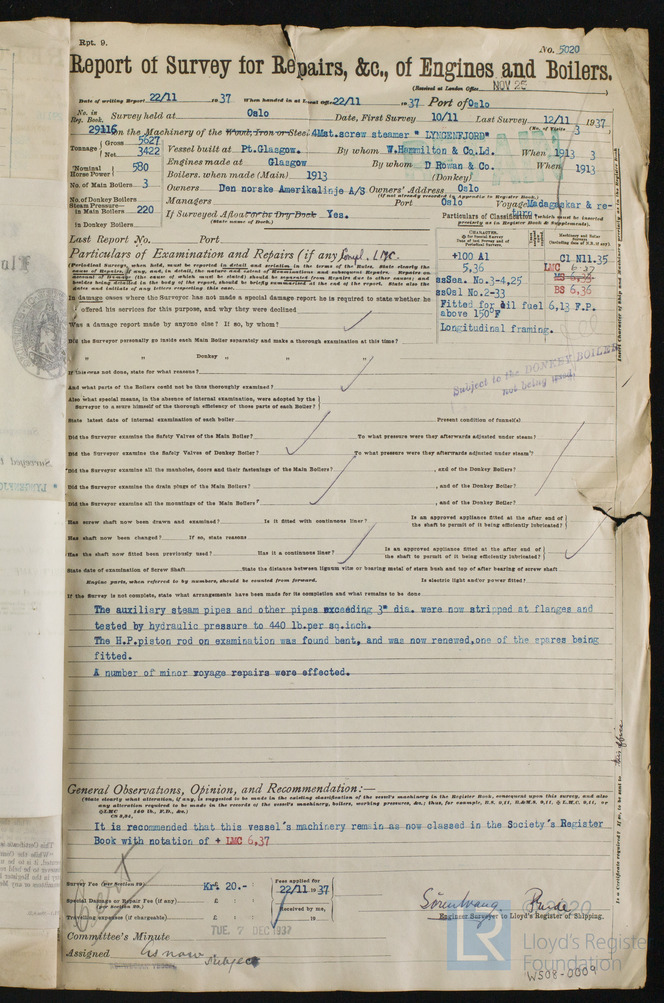 Rpt. 9.
No. 5020
Report of Survey for Repairs, &c., of Engines and Boilers.
(Received at London Office NOV 25
Date of writing Report 22/11 1937 When handed in at Local Office 22/11 1937 Port of Oslo
No. in Reg. Book. Survey held at Oslo Date, First Survey 10/11 Last Survey 12/11 1937
(No. of Visits 3)
29116 on the Machinery of the Wood, Iron or Steel 4Mst.screw steamer " LYNGENFJORD"
Tonnage Gross 5627 Net 3422
Vessel built at Pt.Glasgow. By whom W.Hammilton & Co.Ld. When 1913 3
Nominal Horse Power 580
Engines made at Glasgow By whom D.Rowan & Co. When 1913
No. of Main Boilers 3
Boilers, when made (Main) 1913 (Donkey)
Owners Den norske Amerikalinje A/S Owners' Address Oslo
(If not already recorded in Appendix to Register Book.)
No. of Donkey Boilers
Managers Port Oslo Voyage Madagaskar & re-
Steam Pressure in Main Boilers 220
If Surveyed Afloat or in Dry Dock Yes.
(State name of Dock.)
in Donkey Boilers
Particulars of Classification (which must be inserted precisely as in Register Book & Supplements).
Last Report No. Port
Particulars of Examination and Repairs (if any) LMC.
+100 A1
5,36
ssSea. No.3-4,25
ssOsl No.2-33
C1 N11.35
LMC 6,37
BS 6,36
Fitted for oil fuel 6,13 F.P.
above 150°F
Longitudinal framing.
In damage cases where the Surveyor has not made a special damage report he is required to state whether he
offered his services for this purpose, and why they were declined
Was a damage report made by anyone else? If so, by whom?
Did the Surveyor personally go inside each Main Boiler separately and make a thorough examination at this time?
" " Donkey " " "
If this was not done, state for what reasons?
And what parts of the Boilers could not be thoroughly examined?
Subject to the DONKEY BOILER
not being used
Also what special means, in the absence of internal examination, were adopted by the
Surveyor to assure himself of the thorough efficiency of those parts of each Boiler?
State latest date of internal examination of each boiler Present condition of funnel(s)
Did the Surveyor examine the Safety Valves of the Main Boiler? To what pressure were they afterwards adjusted under steam?
Did the Surveyor examine the Safety Valves of Donkey Boiler? To what pressure were they afterwards adjusted under steam?
Did the Surveyor examine all the manholes, doors and their fastenings of the Main Boilers? , and of the Donkey Boilers?
Did the Surveyor examine the drain plugs of the Main Boilers? , and of the Donkey Boiler?
Did the Surveyor examine all the mountings of the Main Boilers? , and of the Donkey Boiler?
Has screw shaft now been drawn and examined? Is it fitted with continuous liner? Is an approved appliance fitted at the after end of the shaft to permit of it being efficiently lubricated?
Has shaft now been changed? If so, state reasons
Has the shaft now fitted been previously used? Has it a continuous liner? Is an approved appliance fitted at the after end of the shaft to permit of it being efficiently lubricated?
State date of examination of Screw Shaft State the distance between lignum vitæ or bearing metal of stern bush and top of after bearing of screw shaft
Engine parts, when referred to by numbers, should be counted from forward. Is electric light and/or power fitted?
If the Survey is not complete, state what arrangements have been made for its completion and what remains to be done
The auxiliary steam pipes and other pipes exceeding 3" dia. were now stripped at flanges and
tested by hydraulic pressure to 440 lb.per sq.inch.
The H.P.piston rod on examination was found bent, and was now renewed,one of the spares being
fitted.
A number of minor voyage repairs were effected.
General Observations, Opinion, and Recommendation:—
(State clearly what alteration, if any, is suggested to be made in the existing classification of the vessel's machinery in the Register Book, consequent upon this survey, and also
any alteration required to be made in the records of the vessel's machinery, boilers, working pressures, &c.; thus, for example, B.S. 9,11, B.&M.S. 9,11, or L.M.C. 9,11, or
It is recommended that this vessel's machinery remain as now classed in the Society's Register
Book with notation of + LMC 6,37
Survey Fee (per Section 29) Kr. 20.-
Fees applied for
22/11 1937
Special Damage or Repair Fee (if any) £ : :
(per Section 29.)
Received by me,
Travelling expenses (if chargeable) £ : :
19
Engineer Surveyor to Lloyd's Register of Shipping.
Committee's Minute TUE. 7 DEC 1937
Assigned As now
Subject
Lloyd's Register
Foundation
W508-0009